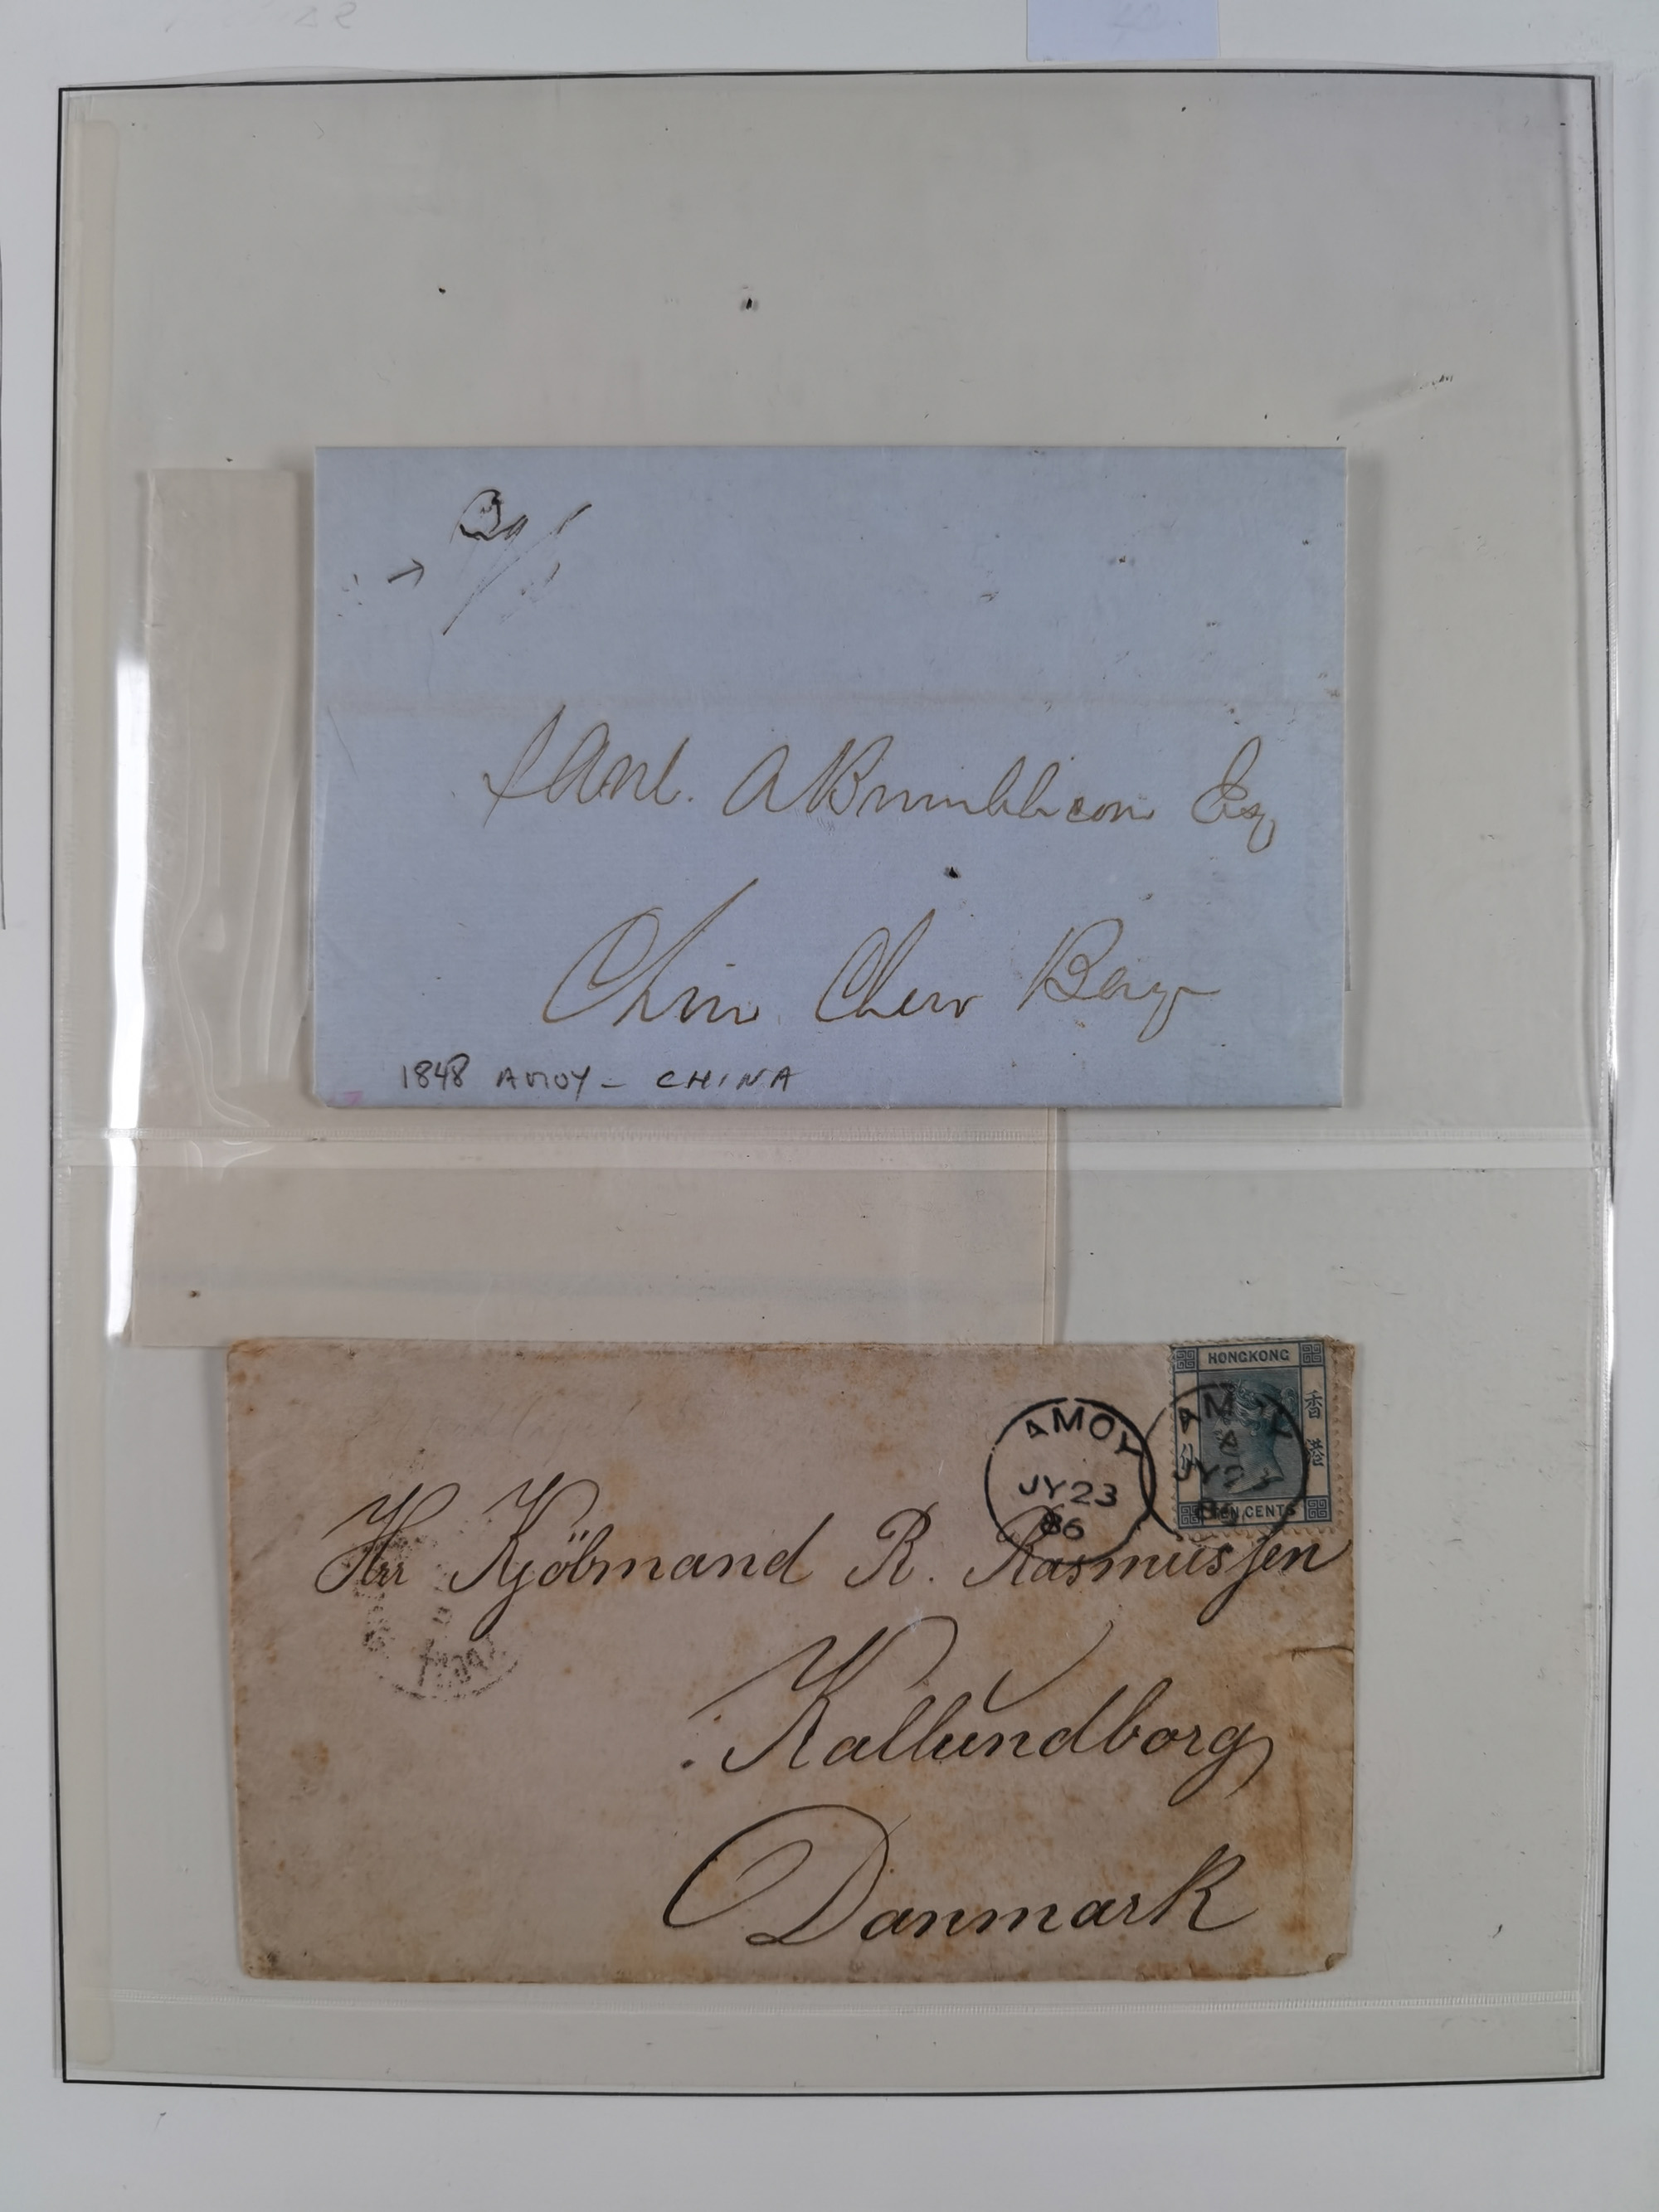 A Brimblecom Esq
Chin Chew Bay
1848 AMOY - CHINA
HONGKONG
香港
TEN CENTS
AMOY
JY 23
86
AMOY
A
JY 23
86
Hrr Kjöbmand R. Rasmussen
Kallundborg
Danmark